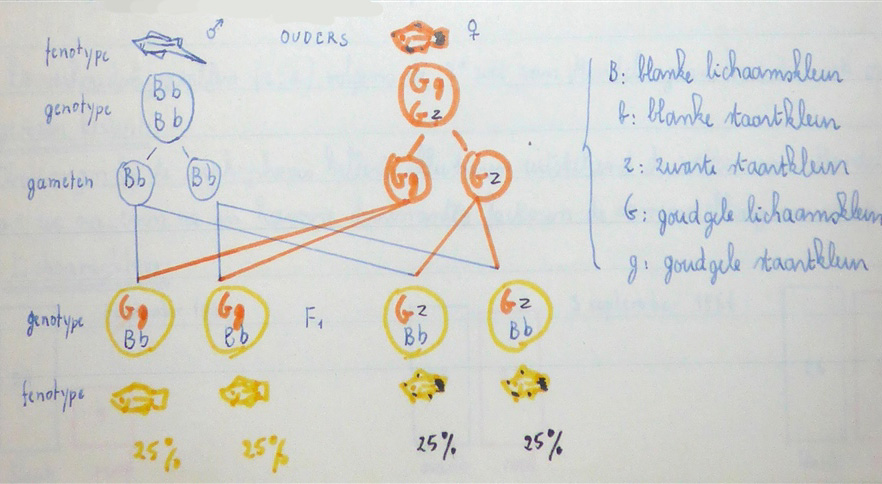 fenotype ♂ OUDERS ♀
genotype Bb Gg
Bb Gz
gameten Bb Bb Gg Gz
B: blanke lichaamskleur
b: blanke staartkleur
z: zwarte staartkleur
G: goudgele lichaamskleur
g: goudgele staartkleur
genotype Gg Gg F1 Gz Gz
Bb Bb Bb Bb
fenotype
25% 25% 25% 25%